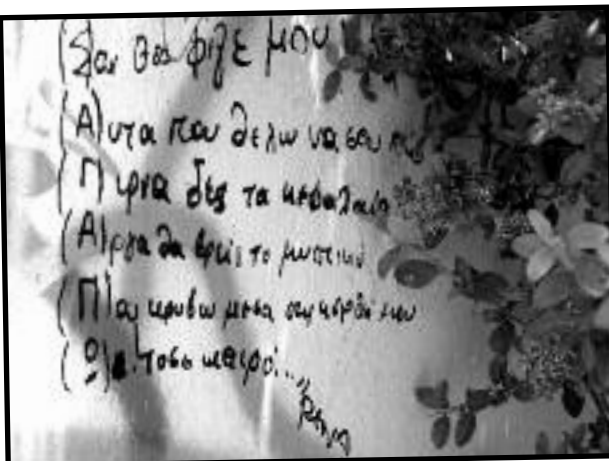 (Σ)
(Α)υτα που θελω να σου πω
(Γ)ιρνα δες τα κεφαλαια
(Α)ργα θα βρεις το μυστικο
(Π)ου κρυβω μεσα στην καρδια μου
τοσο καιρο...